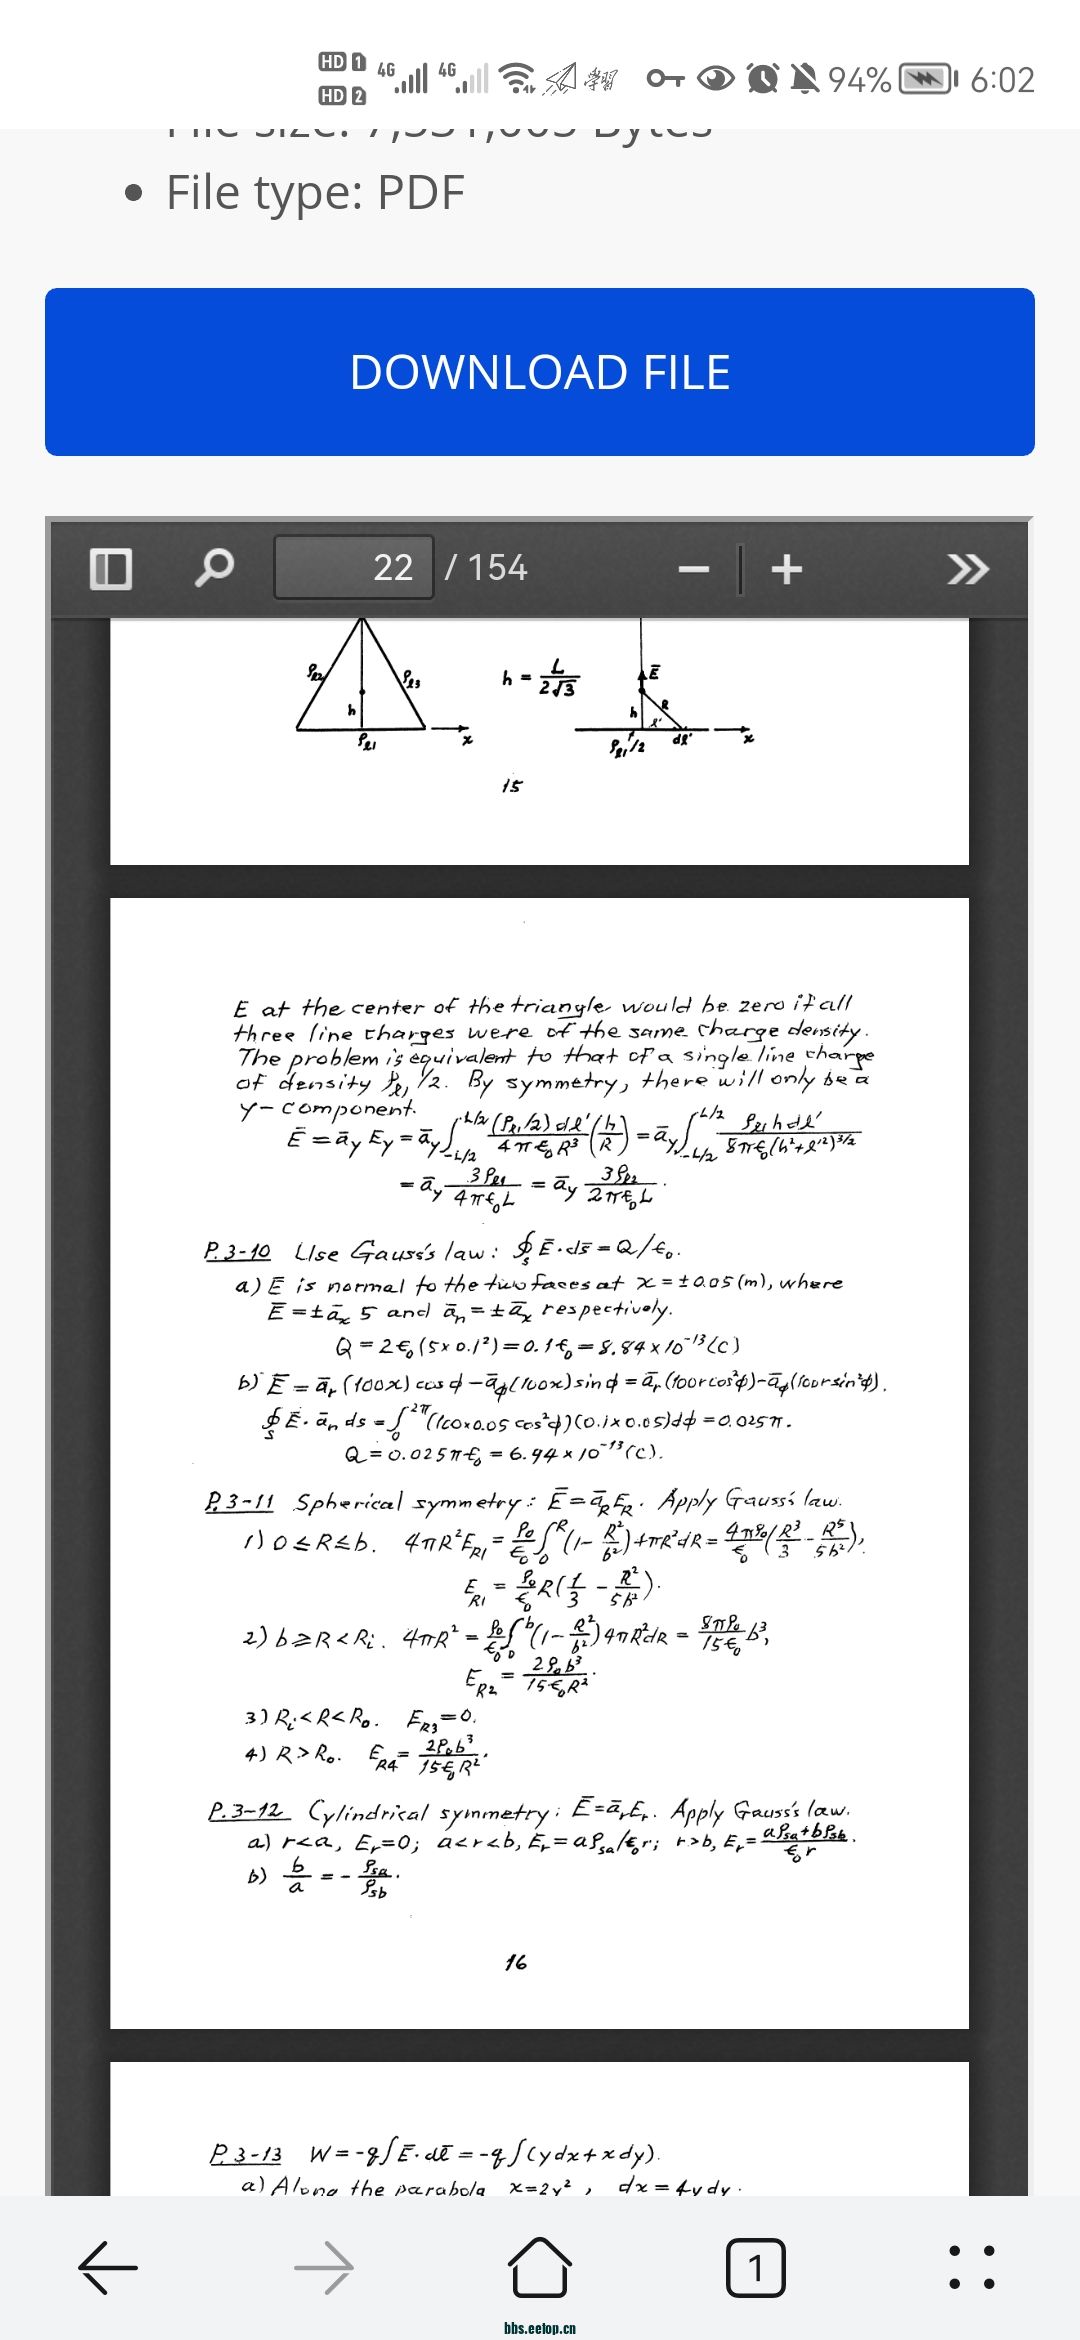 HD 1
HD 2
4G
4G
学習
94%
6:02
File size: 7,551,005 Bytes
• File type: PDF
DOWNLOAD FILE
22 / 154
ρℓ2
ρℓ3
h
ρℓ1
x
h = L/(2√3)
Ē
R
h
ℓ'
ρℓ1/2
dℓ'
x
15
E at the center of the triangle would be zero if all
three line charges were of the same charge density.
The problem is equivalent to that of a single line charge
of density ρℓ1/2. By symmetry, there will only be a
y-component.
Ē = āy Ey = āy ∫_{-L/2}^{L/2} (ρℓ1/2)dℓ'/(4πε₀R²) (h/R) = āy ∫_{-L/2}^{L/2} ρℓ1 h dℓ'/(8πε₀(h²+ℓ'²)^{3/2})
= āy 3ρℓ1/(4πε₀L) = āy 3ρℓ2/(2πε₀L).
P.3-10 Use Gauss's law: ∮s Ē·ds̄ = Q/ε₀.
a) Ē is normal to the two faces at x = ±0.05 (m), where
Ē = ±āx 5 and ān = ±āx respectively.
Q = 2ε₀(5×0.1²) = 0.1ε₀ = 8.84×10⁻¹³ (C)
b) Ē = ār(100x)cosϕ − āϕ(100x)sinϕ = ār(100r cos²ϕ) − āϕ(100r sin²ϕ).
∮s Ē·ān ds = ∫₀^{2π} (100×0.05 cos²ϕ)(0.1×0.05)dϕ = 0.025π.
Q = 0.025πε₀ = 6.94×10⁻¹³ (C).
P.3-11 Spherical symmetry: Ē = āR ER. Apply Gauss's law.
1) 0≤R≤b. 4πR²ER1 = ρ₀/ε₀ ∫₀^R (1 − R²/b²)4πR²dR = 4πρ₀/ε₀ (R³/3 − R⁵/5b²),
ER1 = ρ₀/ε₀ R(1/3 − R²/5b²).
2) b≥R<Ri. 4πR² = ρ₀/ε₀ ∫₀^b (1 − R²/b²)4πR²dR = 8πρ₀/15ε₀ b³,
ER2 = 2ρ₀b³/15ε₀R².
3) Ri<R<Ro. ER3 = 0.
4) R>Ro. ER4 = 2ρ₀b³/15ε₀R².
P.3-12 Cylindrical symmetry: Ē = ār Er. Apply Gauss's law.
a) r<a, Er=0; a<r<b, Er = aρsa/ε₀r; r>b, Er = (aρsa + bρsb)/ε₀r.
b) b/a = − ρsa/ρsb.
16
P.3-13 W = −q∫Ē·dℓ̄ = −q∫(ydx + xdy).
a) Along the parabola x=2y², dx=4ydy.
1
bbs.eetop.cn